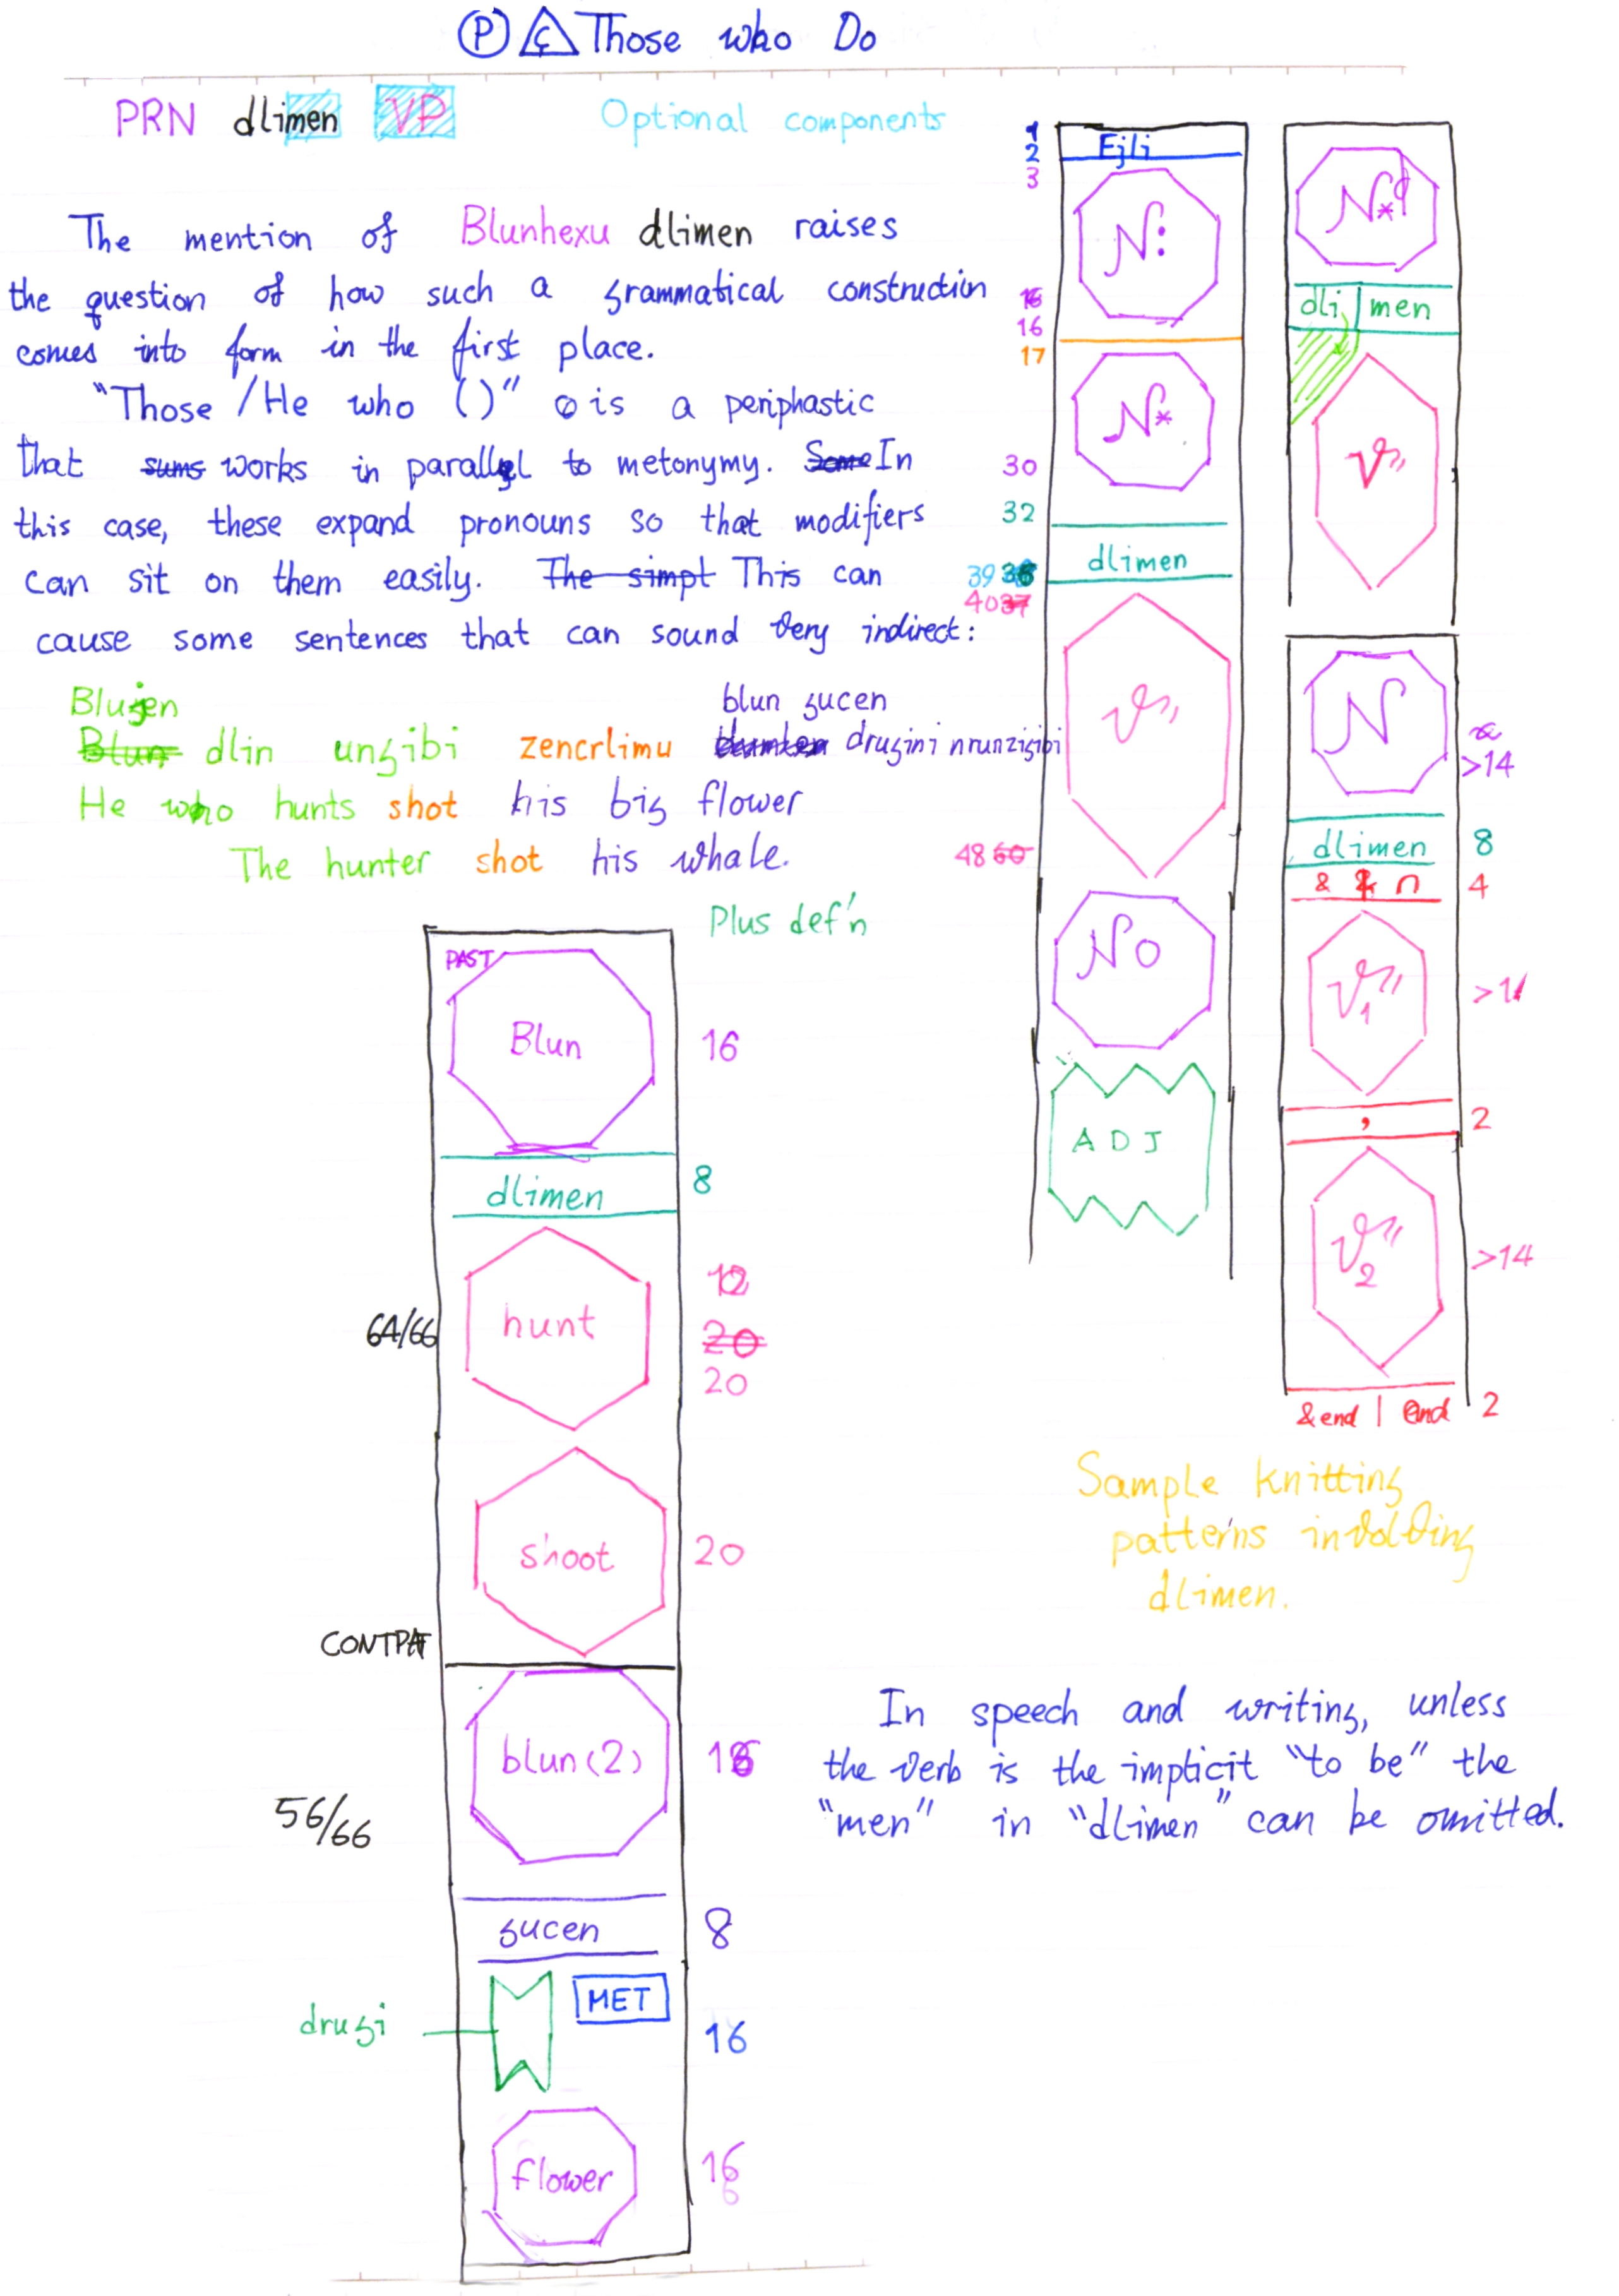 Ⓟ Ç Those who Do
PRN dlimen VP Optional components
The mention of Blunhexu dlimen raises
the question of how such a grammatical construction
comes into form in the first place.
"Those / He who ( )" is a periphastic
that sums works in parallel to metonymy. Some In
this case, these expand pronouns so that modifiers
can sit on them easily. The simpl This can
cause some sentences that can sound very indirect:
Blugen blun gucen
Blun dlin ungibi zencrlimu drugini nrunzigibi
He who hunts shot his big flower
The hunter shot his whale.
Plus def'n
PAST
Blun 16
dlimen 8
12
hunt 20
64/66 20
shoot 20
CONTPAT
blun(2) 16
56/66
gucen 8
drugi MET 16
flower 16
6
1
2 Ejli
3
N:
16
16
17
N*
30
32
dlimen
39 36
40 37
V"
48 60
NO
ADJ
N*d
dli|men
V"
N
>14
dlimen 8
& & n 4
V1" >14
, 2
V2" >14
&end | end 2
Sample knitting
patterns involving
dlimen.
In speech and writing, unless
the verb is the implicit "to be" the
"men" in "dlimen" can be omitted.